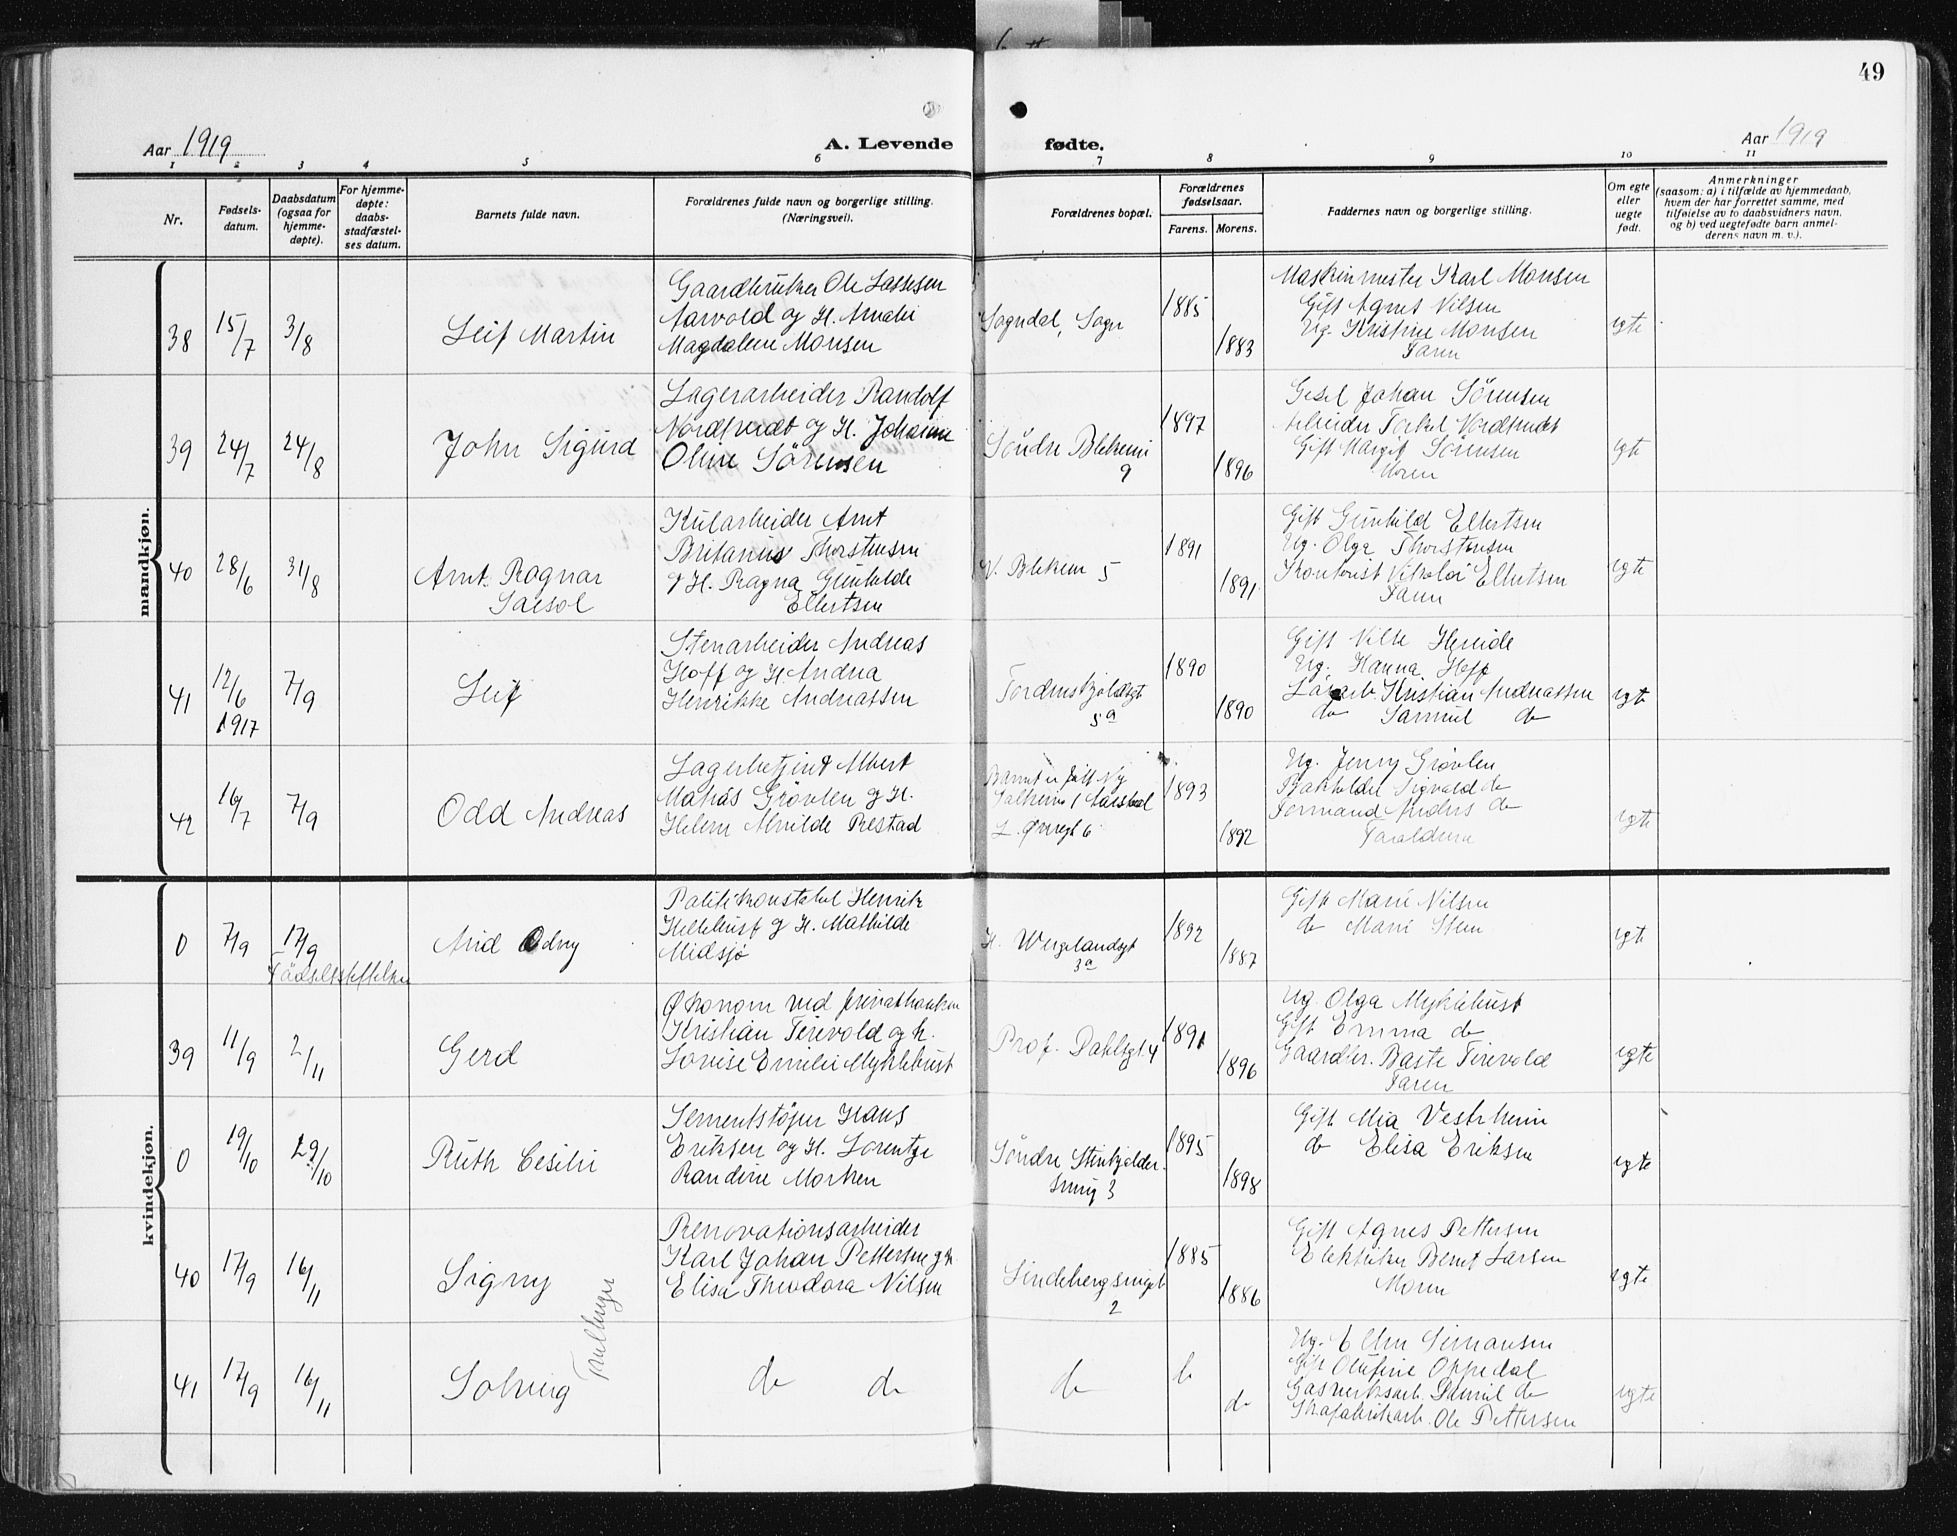 49
Aar 1919
A. Levende
fødte.
Aar 1919
1 2 3 4 5 6 7 8 9 10 11
Nr.
Fødsels-
datum.
Daabsdatum
(ogsaa for
hjemme-
døpte).
For hjemme-
døpte:
daabs-
stadfæstel-
ses datum.
Barnets fulde navn.
Forældrenes fulde navn og borgerlige stilling.
(Næringsvei).
Forældrenes bopæl.
Forældrenes
fødselsaar.
Farens. Morens.
Faddernes navn og borgerlige stilling.
Om egte
eller
uegte
født.
Anmerkninger
(saasom: a) i tilfælde av hjemmedaab,
hvem der har forrettet samme, med
tilføielse av to daabsvidners navn,
og b) ved uegtefødte barn anmel-
derens navn m. v.).
mandkjøn.
38
15/7
3/8
Leif Martin
Gaardbruker Ole Lassesen
Aarvold og H. Amalie
Magdalene Monsen
Sogndal, Sogn
1885
1883
Maskinmester Karl Monsen
Gift Agnes Nilsen
Ug. Kristine Monsen
Faren
egte
39
24/7
24/8
John Sigurd
Lagerarbeider Randolf
Nordtvedt og H. Johanne
Oline Sörensen
Söndre Blekevei
9
1897
1896
Gesel Johan Sörensen
Arbeider Torkel Nordtvedt
Gift Margit Sörensen
Moren
egte
40
28/6
31/8
Arnt Ragnar
Kularbeider Arnt
Britanius Thorstensen
og H. Ragna Gunhilde
Ellertsen
V. Blekevei 5
1891
1891
Gift Gunhild Ellertsen
Ug. Olga Thorstensen
Kontorist Nikolai Ellertsen
Faren
egte
41
12/6
1917
7/9
Leif
Stenarbeider Andreas
Hoff og H. Andrea
Henrikke Andreassen
Tordenskjoldsgt
5a
1890
1890
Ug. Hanna Hoff
Kristian Andreassen
do Samuel do
egte
42
16/7
7/9
Odd Andreas
Lagerbetjent Albert
Matias Grøvlen og H.
Helene Alvilde Restad
L. Øvregt 6
1893
1892
Ug. Jenny Grøvlen
Bokholder Sigvald do
Formand Anders do
Forældrene
egte
kvindekjøn.
0
7/9
17/9
Födselsstiftelsen
Arid Odny
Politikonstabel Henrik
Hellebust og H. Mathilde
Midsjø
H. Wergelandsgt
3a
1892
1887
Gift Marie Nilsen
do Marie Steen
egte
39
11/9
2/11
Gerd
Økonom ved privatbanken
Kristian Terevold og h.
Lovise Emilie Myklebust
Prof. Dahlsgt. 4
1891
1896
Ug. Olga Myklebust
Gift Emma do
Gaardbr. Baste Terevold
Faren
egte
0
19/10
29/10
Ruth Cesilie
Sementstøper Hans
Eriksen og H. Lorentze
Randine Morken
Söndre Stenkjelder-
smug 3
1895
1898
Gift Mia Vestrheim
do Elisa Eriksen
egte
40
17/9
16/11
Signy
Tvillinger
Renovationsarbeider
Karl Johan Pettersen og h.
Elisa Theodora Nilsen
Lindebergsmuget
2
1885
1886
Gift Agnes Pettersen
Elektriker Bernt Larsen
Moren
egte
41
17/9
16/11
Solveig
do do
do
do
do
Ug. Ellen Simonsen
Gift Olufine Oppedal
Gasverksarb. Daniel do
Skofabrikarb. Ole Pettersen
egte